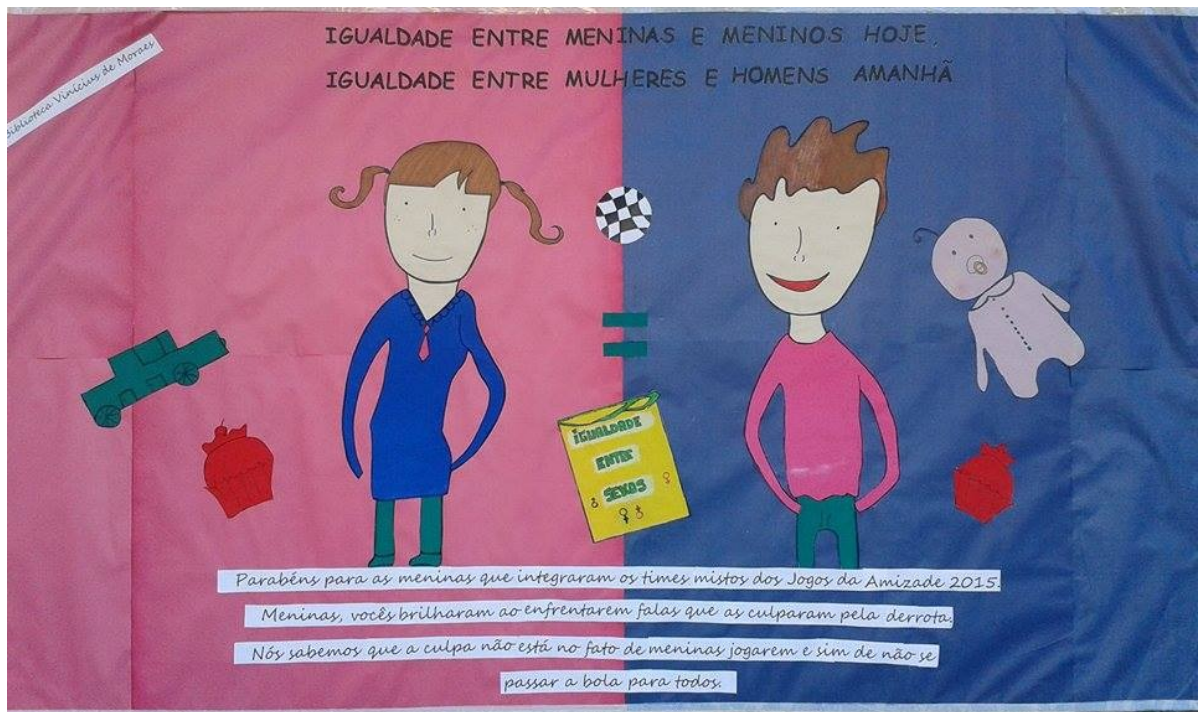 Biblioteca Vinicius de Moraes
IGUALDADE ENTRE MENINAS E MENINOS HOJE,
IGUALDADE ENTRE MULHERES E HOMENS AMANHÃ
IGUALDADE
ENTRE
SEXOS
Parabéns para as meninas que integraram os times mistos dos Jogos da Amizade 2015.
Meninas, vocês brilharam ao enfrentarem falas que as culparam pela derrota.
Nós sabemos que a culpa não está no fato de meninas jogarem e sim de não se
passar a bola para todos.